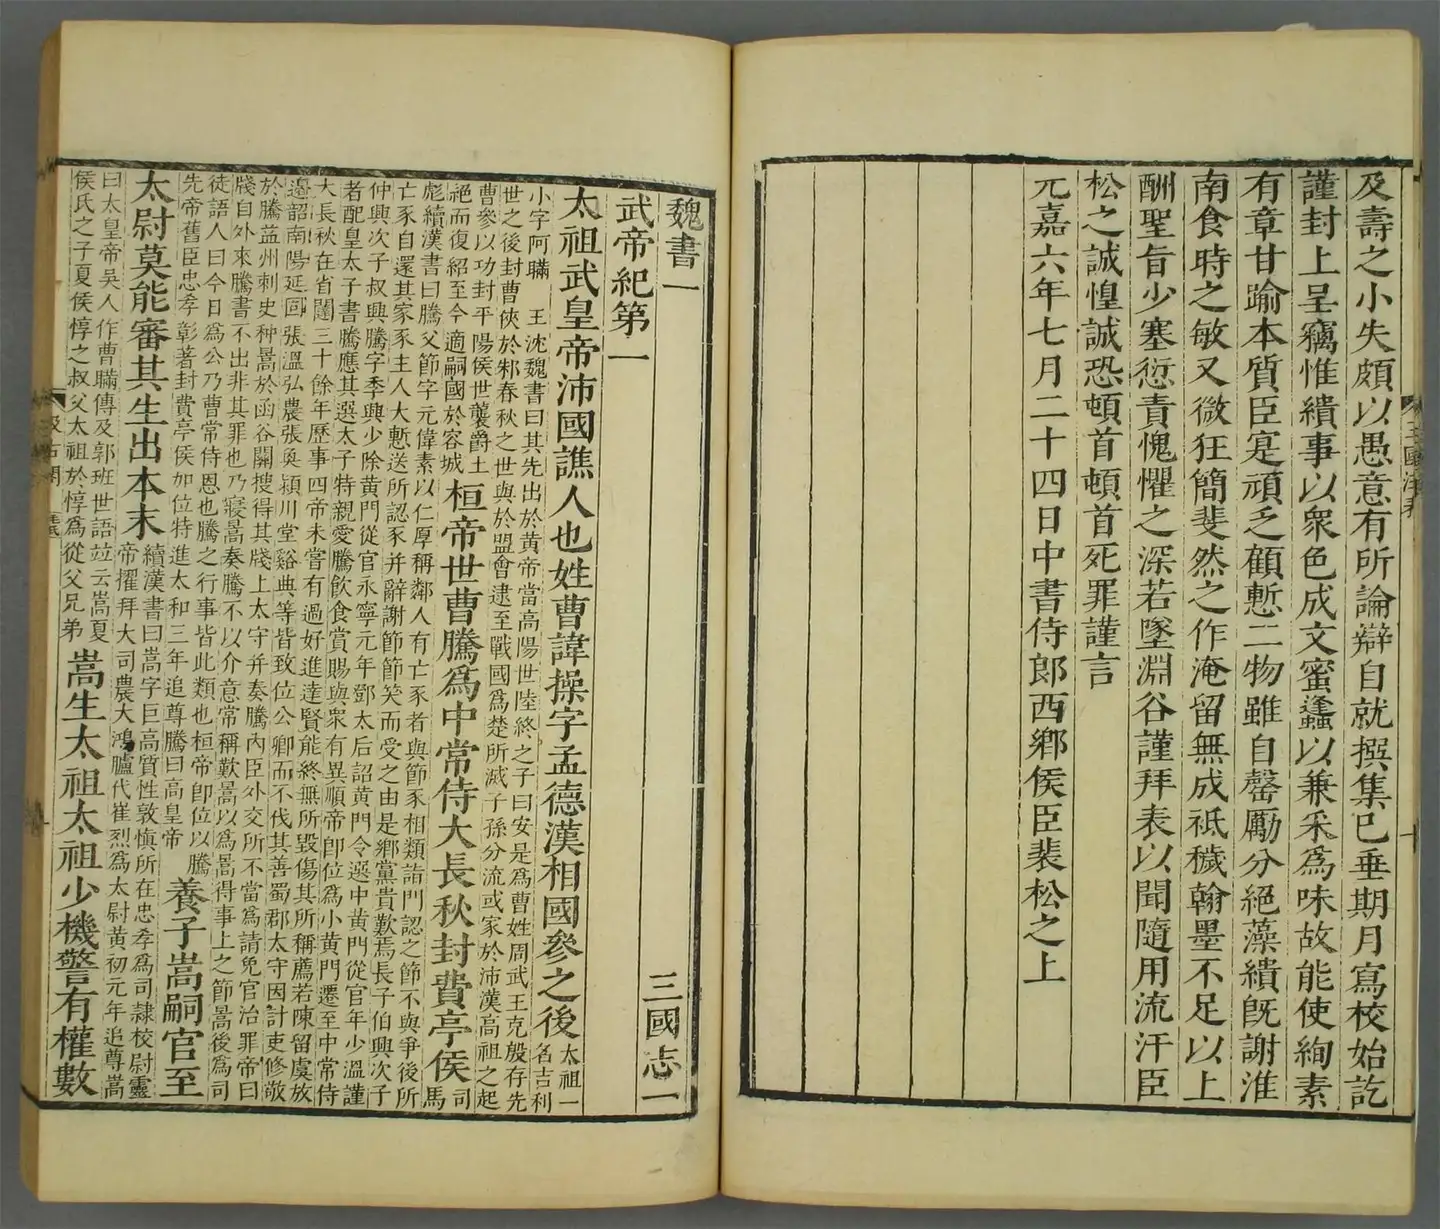 及壽之小失頗以愚意有所論辯自就撰集已垂期月寫校始訖
謹封上呈竊惟繢事以衆色成文蜜蠭以兼采爲味故能使絢素
有章甘踰本質臣寔頑乏顧慙二物雖自罄勵分絕藻繢旣謝淮
南食時之敏又微狂簡斐然之作淹留無成祗穢翰墨不足以上
酬聖旨少塞愆責愧懼之深若墜淵谷謹拜表以聞隨用流汗臣
松之誠惶誠恐頓首頓首死罪謹言
元嘉六年七月二十四日中書侍郎西鄉侯臣裴松之上
魏書一 三國志一
武帝紀第一
太祖武皇帝沛國譙人也姓曹諱操字孟德漢相國參之後太祖一名吉利
小字阿瞞 王沈魏書曰其先出於黃帝當高陽世陸終之子曰安是爲曹姓周武王克殷存先
世之後封曹俠於邾春秋之世與於盟會逮至戰國爲楚所滅子孫分流或家於沛漢高祖之起
曹參以功封平陽侯世襲爵土絕而復紹至今適嗣國於容城桓帝世曹騰爲中常侍大長秋封費亭侯司馬
彪續漢書曰騰父節字元偉素以仁厚稱鄰人有亡豕者與節豕相類詣門認之節不與爭後所
亡豕自還其家豕主人大慙送所認豕并辭謝節節笑而受之由是鄉黨貴歎焉長子伯興次子
仲興次子叔興騰字季興少除黃門從官永寧元年鄧太后詔黃門令選中黃門從官年少溫謹
者配皇太子書騰應其選太子特親愛騰飲食賞賜與衆有異順帝卽位爲小黃門遷至中常侍
大長秋在省闥三十餘年歷事四帝未嘗有過好進達賢能終無所毀傷其所稱薦若陳留虞放
邊韶南陽延固張溫弘農張奐潁川堂谿典等皆致位公卿而不伐其善蜀郡太守因計吏修敬
於騰益州刺史种暠於函谷關搜得其牋上太守并奏騰內臣外交所不當爲請免官治罪帝曰
牋自外來騰書不出非其罪也乃寢暠奏騰不以介意常稱歎暠以爲暠得事上之節暠後爲司
徒語人曰今日爲公乃曹常侍恩也騰之行事皆此類也桓帝卽位以騰
先帝舊臣忠孝彰著封費亭侯加位特進太和三年追尊騰曰高皇帝 養子嵩嗣官至
太尉莫能審其生出本末續漢書曰嵩字巨高質性敦愼所在忠孝爲司隸校尉靈
帝擢拜大司農大鴻臚代崔烈爲太尉黃初元年追尊嵩
曰太皇帝吳人作曹瞞傳及郭班世語竝云嵩夏
侯氏之子夏侯惇之叔父太祖於惇爲從父兄弟嵩生太祖太祖少機警有權數